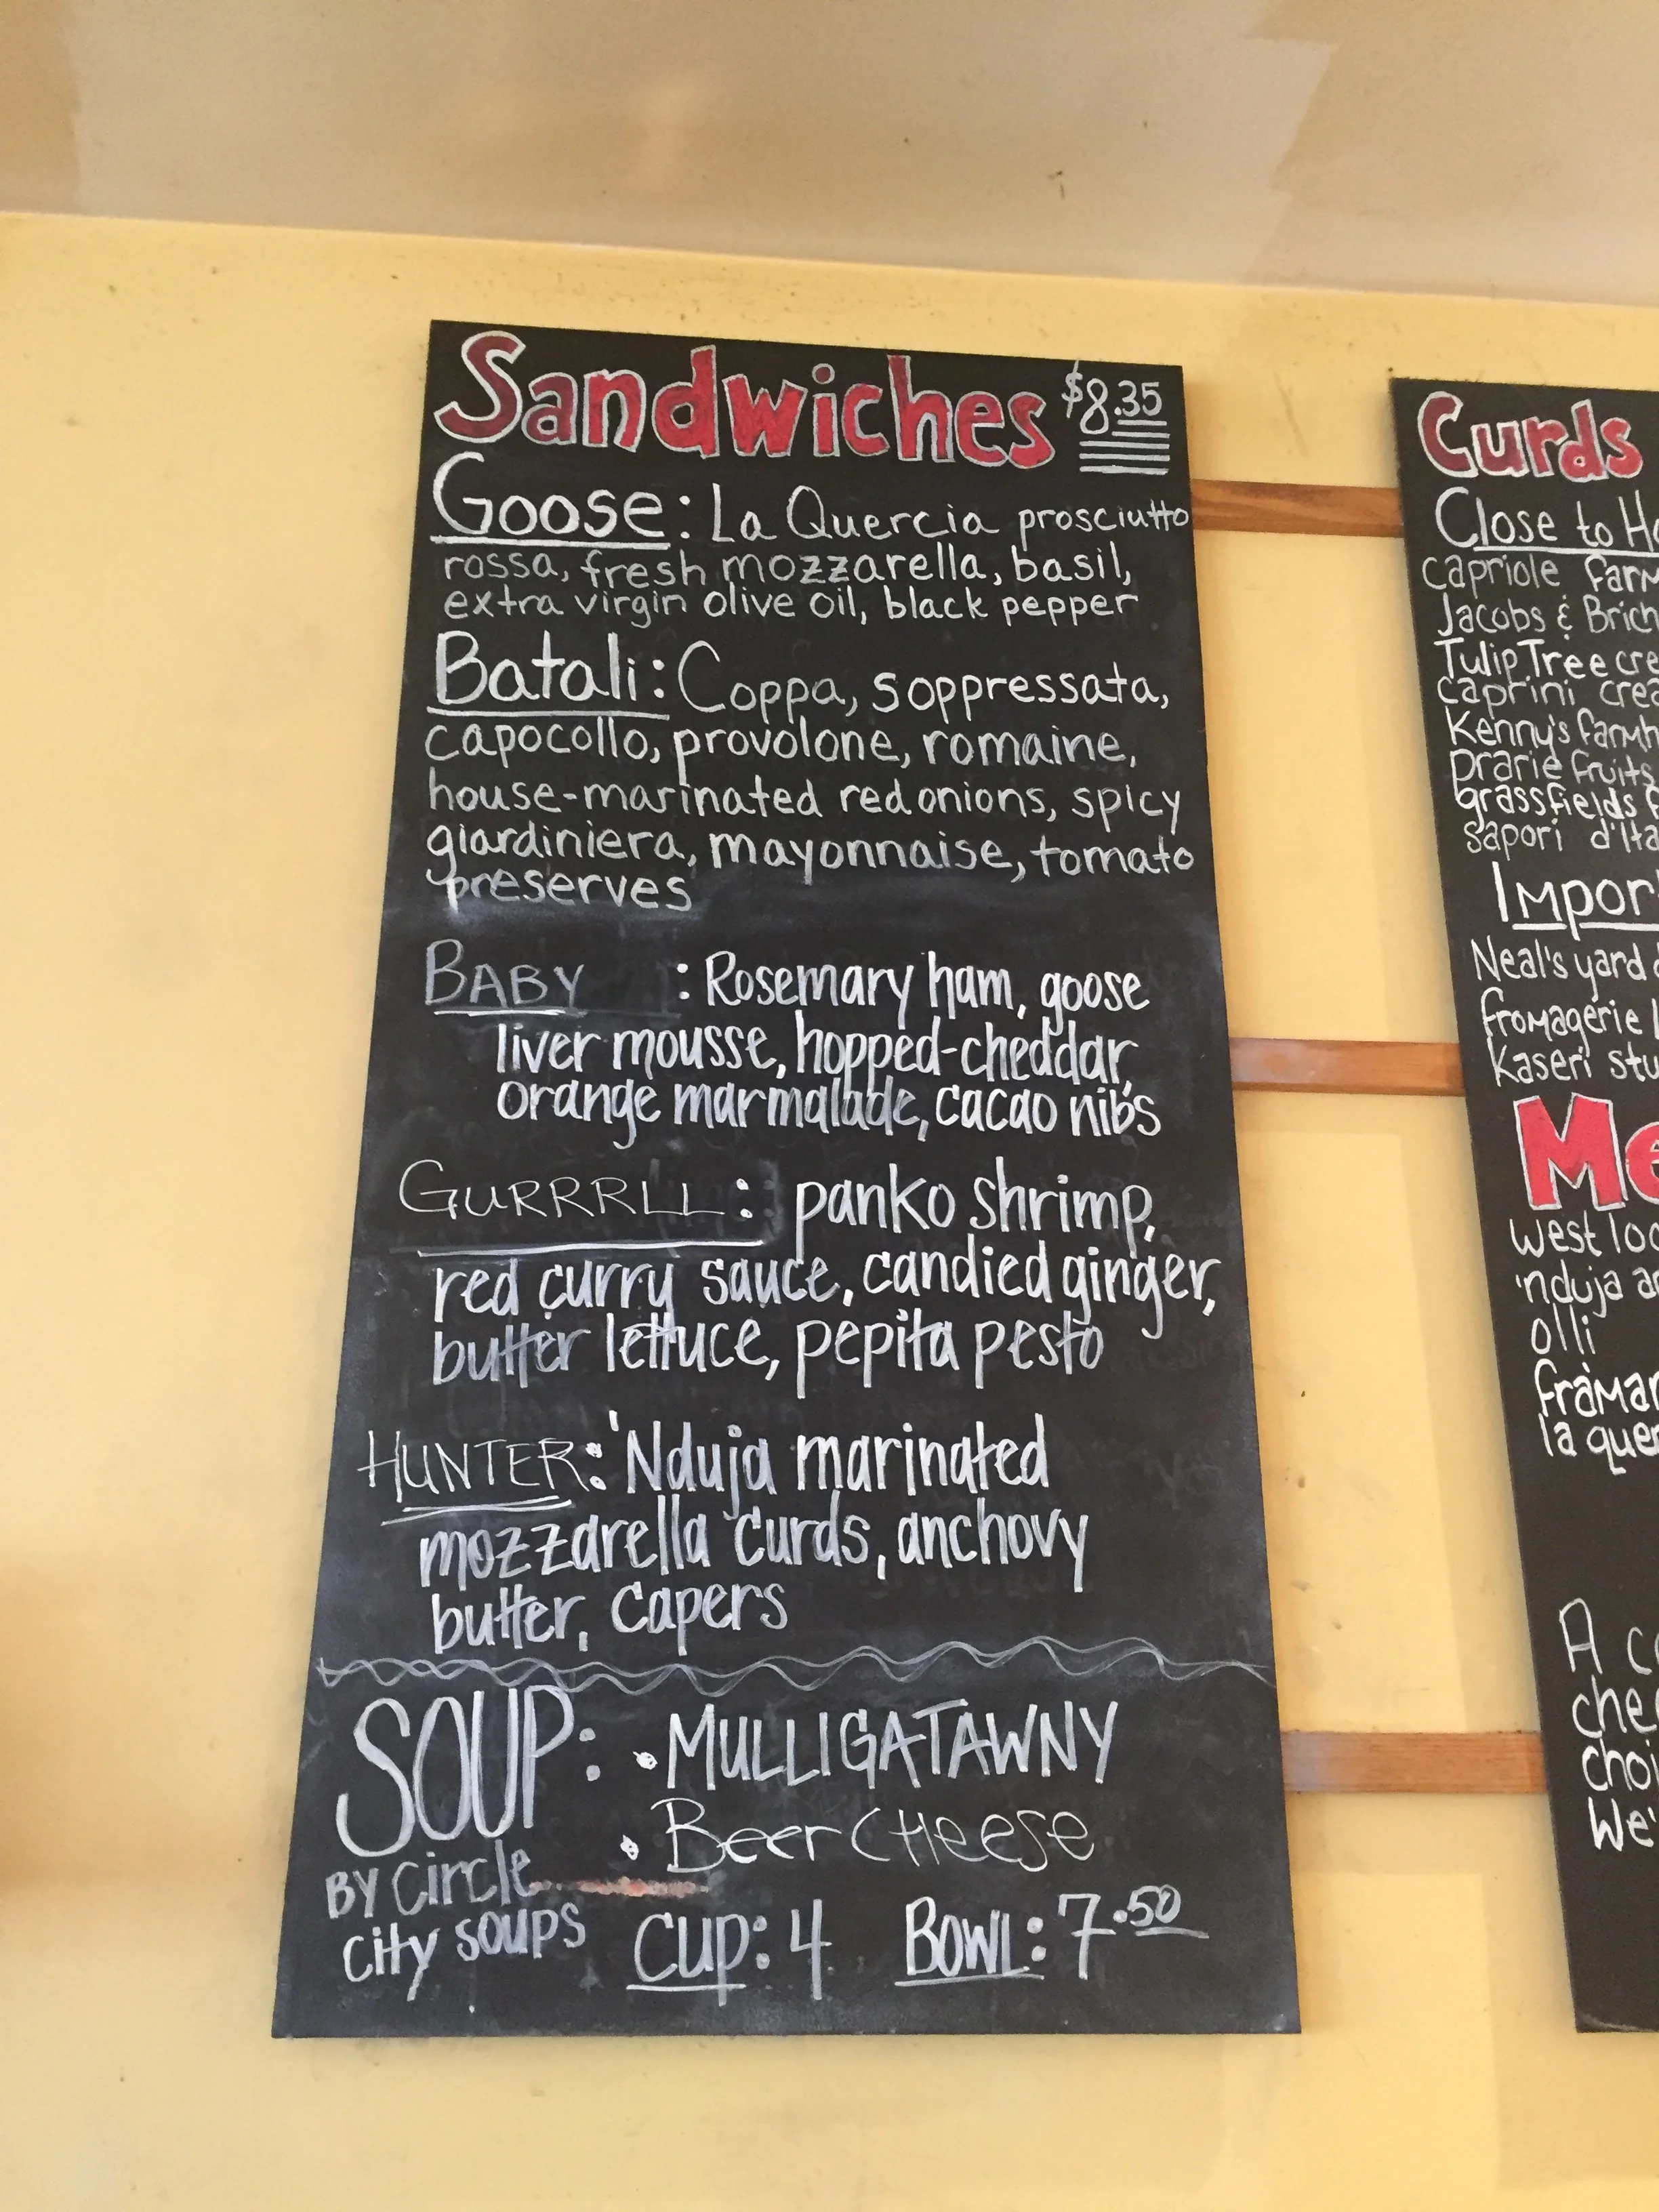 Sandwiches $8.35
Goose: La Quercia prosciutto
rossa, fresh mozzarella, basil,
extra virgin olive oil, black pepper
Batali: Coppa, soppressata,
capocollo, provolone, romaine,
house-marinated red onions, spicy
giardiniera, mayonnaise, tomato
preserves
BABY : Rosemary ham, goose
liver mousse, hopped-cheddar,
orange marmalade, cacao nibs
GURRRLL: panko shrimp,
red curry sauce, candied ginger,
butter lettuce, pepita pesto
HUNTER: 'Nduja marinated
mozzarella curds, anchovy
butter, capers
SOUP: • MULLIGATAWNY
• Beer CHeese
BY Circle
City SOUPS
CUP: 4 BOWL: 7.50
Curds
Close to
capriole farm
Jacobs &
Tulip Tree
caprini
Kenny's
Prarie fruits
grassfields
sapori d'Ita
Impor
Neal's yard
fromagerie
kaseri
Me
west
'nduja
olli
la quer
A
We'